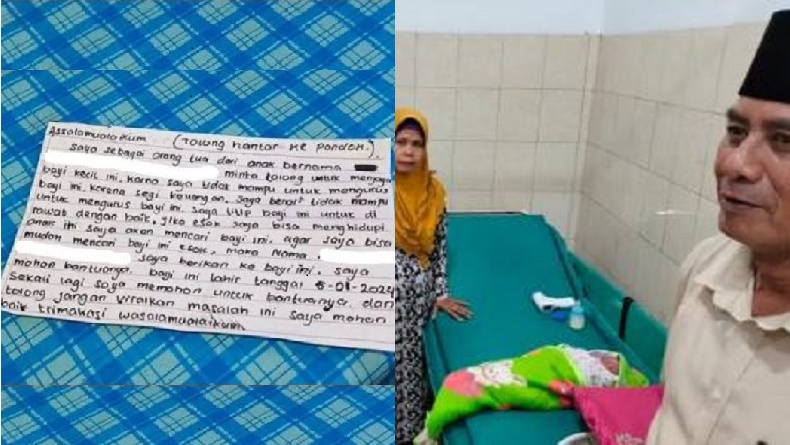 Assalamualaikum (Tolong hantar ke pondok.)
saya sebagai orang tua dari anak bernama
minta tolong untuk menjaga
bayi kecil ini. karna saya tidak mampu untuk mengurus
bayi ini. karena segi keuangan. saya benar² tidak mampu
untuk mengurus bayi ini. saya bayi ini untuk di
rawat dengan baik. jika esok saya bisa menghidupi
anak ini saya akan mencari bayi ini. agar saya bisa
mudah mencari bayi ini esok, maka nama.
saya berikan ke bayi ini. saya
mohon bantuanya. bayi ini lahir tanggal -01-2024
sekali lagi saya memohon untuk bantuanya. dan
tolong jangan viralkan masalah ini saya mohon
baik trimakasi wasalamualaikum